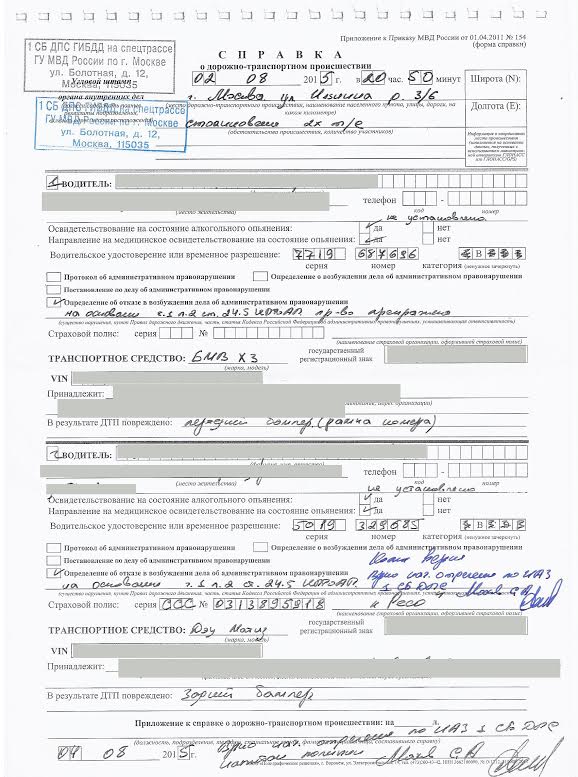 Приложение к Приказу МВД России от 01.04.2011 № 154
(форма справки)
1 СБ ДПС ГИБДД на спецтрассе
ГУ МВД России по г. Москве
ул. Болотная, д. 12,
Москва, 115035
Угловой штамп
органа внутренних дел
1 СБ ДПС ГИБДД на спецтрассе
ГУ МВД России по г. Москве
ул. Болотная, д. 12,
Москва, 115035
СПРАВКА
о дорожно-транспортном происшествии
02 08 2015 г. в 20 час. 50 минут
Широта (N):
г. Москва ул
Долгота (E):
столкновение 2х т/с
(обстоятельства происшествия, количество участников)
1. ВОДИТЕЛЬ:
телефон -
(место жительства) код номер
не установлено
Освидетельствование на состояние алкогольного опьянения: да нет
Направление на медицинское освидетельствование на состояние опьянения: да нет
Водительское удостоверение или временное разрешение: 7719 687686 В
серия номер категория (ненужное зачеркнуть)
Протокол об административном правонарушении Определение о возбуждении дела об административном правонарушении
Постановление по делу об административном правонарушении
Определение об отказе в возбуждении дела об административном правонарушении
на основании ч.1 п.2 ст. 24.5 КРФоАП пр-во прекращено
Страховой полис: серия - №
(наименование страховой организации, оформившей страховой полис)
ТРАНСПОРТНОЕ СРЕДСТВО: БМВ Х3 государственный регистрационный знак
(марка, модель)
VIN
Принадлежит:
В результате ДТП повреждено: передний бампер (рамка номера)
2. ВОДИТЕЛЬ:
телефон -
(место жительства) код номер
не установлено
Освидетельствование на состояние алкогольного опьянения: да нет
Направление на медицинское освидетельствование на состояние опьянения: да нет
Водительское удостоверение или временное разрешение: 5019 329685 В
серия номер категория (ненужное зачеркнуть)
Протокол об административном правонарушении Определение о возбуждении дела об административном правонарушении
Постановление по делу об административном правонарушении
Копия верна
Определение об отказе в возбуждении дела об административном правонарушении
Врио нач. отделения по ИАЗ
1 СБ ДПС
на основании ч.1 п.2 ст. 24.5 КРФоАП
Страховой полис: серия ССС № 0313895918 Ресо
(наименование страховой организации, оформившей страховой полис)
ТРАНСПОРТНОЕ СРЕДСТВО: Дэу Матиз государственный регистрационный знак
(марка, модель)
VIN
Принадлежит:
В результате ДТП повреждено: задний бампер
Приложение к справке о дорожно-транспортном происшествии: на л.
Врио нач. отделения по ИАЗ 1 СБ ДПС
04 08 2015 г. капитан полиции